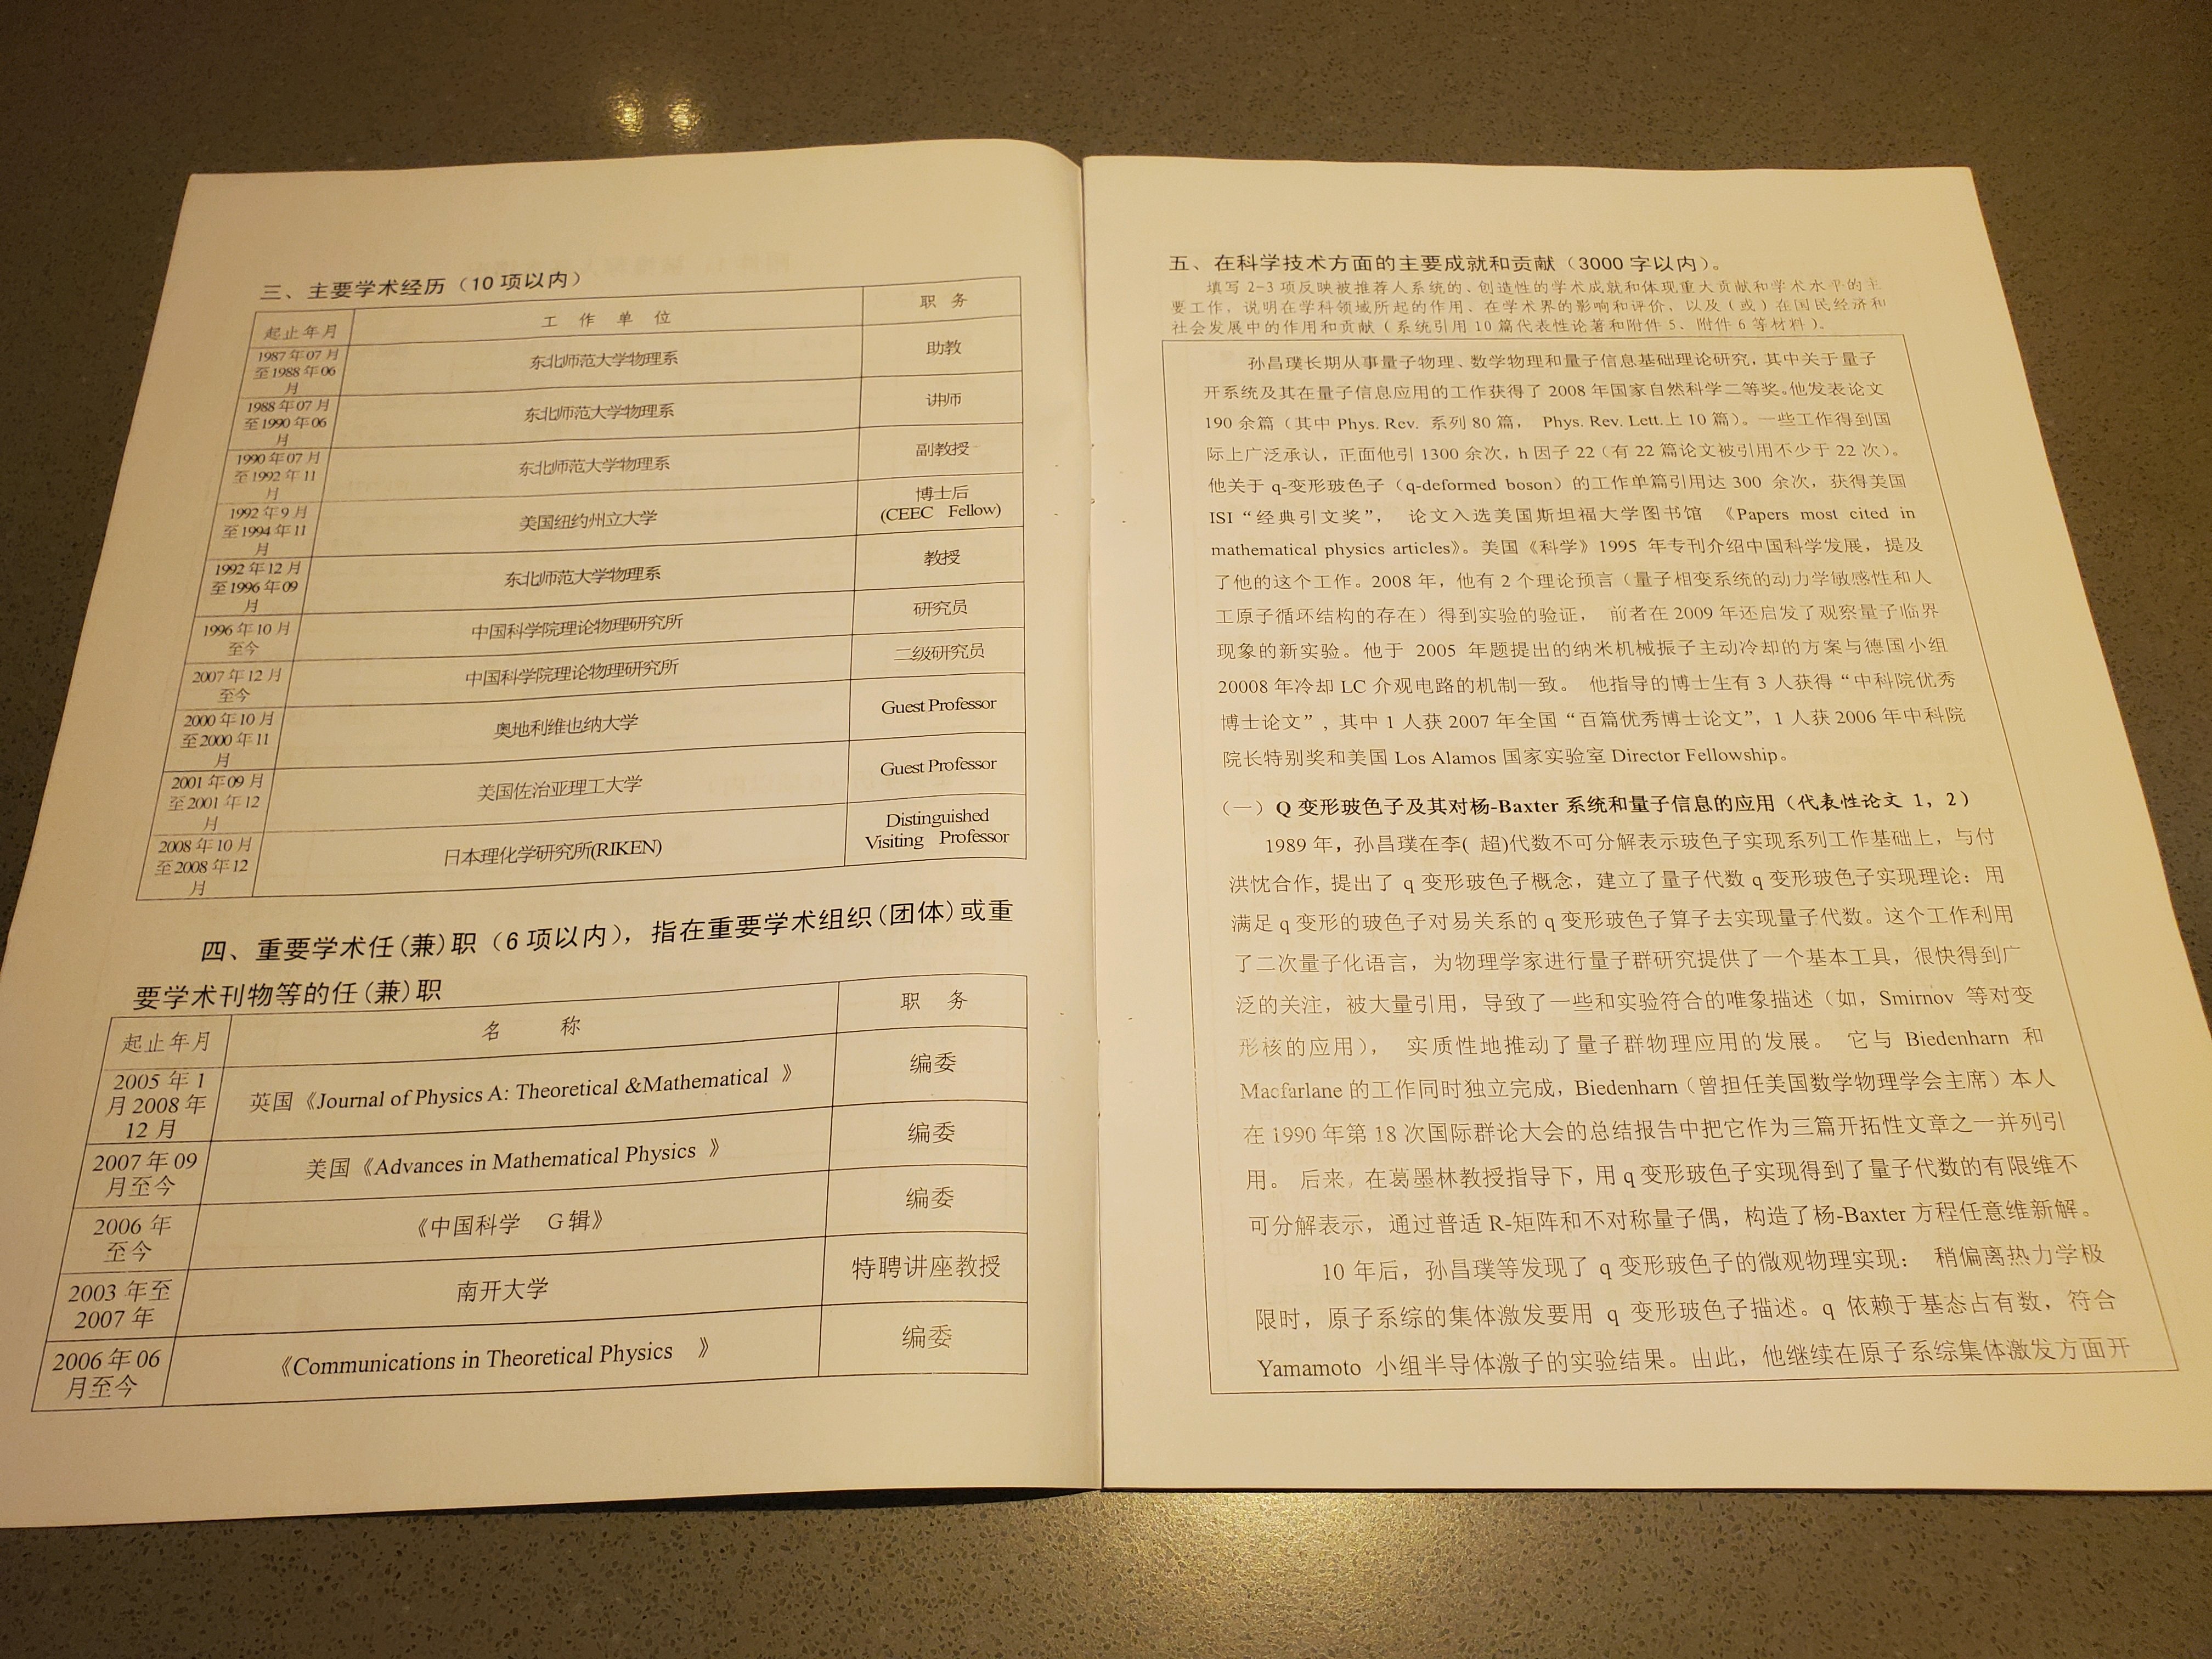 三、主要学术经历（10 项以内）
起止年月 工 作 单 位 职 务
1987 年 07 月至 1988 年 06 月 东北师范大学物理系 助教
1988 年 07 月至 1990 年 06 月 东北师范大学物理系 讲师
1990 年 07 月至 1992 年 11 月 东北师范大学物理系 副教授
1992 年 9 月至 1994 年 11 月 美国纽约州立大学 博士后 (CEEC Fellow)
1992 年 12 月至 1996 年 09 月 东北师范大学物理系 教授
1996 年 10 月至今 中国科学院理论物理研究所 研究员
2007 年 12 月至今 中国科学院理论物理研究所 二级研究员
2000 年 10 月至 2000 年 11 月 奥地利维也纳大学 Guest Professor
2001 年 09 月至 2001 年 12 月 美国佐治亚理工大学 Guest Professor
2008 年 10 月至 2008 年 12 月 日本理化学研究所(RIKEN) Distinguished Visiting Professor
四、重要学术任(兼)职（6 项以内），指在重要学术组织(团体)或重
要学术刊物等的任(兼)职
起止年月 名 称 职 务
2005 年 1 月 2008 年 12 月 英国《Journal of Physics A: Theoretical &Mathematical 》 编委
2007 年 09 月至今 美国《Advances in Mathematical Physics 》 编委
2006 年至今 《中国科学 G 辑》 编委
2003 年至 2007 年 南开大学 特聘讲座教授
2006 年 06 月至今 《Communications in Theoretical Physics 》 编委
五、在科学技术方面的主要成就和贡献（3000 字以内）。
填写 2-3 项反映被推荐人系统的、创造性的学术成就和体现重大贡献和学术水平的主
要工作，说明在学科领域所起的作用、在学术界的影响和评价，以及（或）在国民经济和
社会发展中的作用和贡献（系统引用 10 篇代表性论著和附件 5、附件 6 等材料）。
孙昌璞长期从事量子物理、数学物理和量子信息基础理论研究，其中关于量子
开系统及其在量子信息应用的工作获得了 2008 年国家自然科学二等奖。他发表论文
190 余篇（其中 Phys. Rev. 系列 80 篇， Phys. Rev. Lett.上 10 篇）。一些工作得到国
际上广泛承认，正面他引 1300 余次，h 因子 22（有 22 篇论文被引用不少于 22 次）。
他关于 q-变形玻色子（q-deformed boson）的工作单篇引用达 300 余次，获得美国
ISI“经典引文奖”， 论文入选美国斯坦福大学图书馆 《Papers most cited in
mathematical physics articles》。美国《科学》1995 年专刊介绍中国科学发展，提及
了他的这个工作。2008 年，他有 2 个理论预言（量子相变系统的动力学敏感性和人
工原子循环结构的存在）得到实验的验证， 前者在 2009 年还启发了观察量子临界
现象的新实验。他于 2005 年题提出的纳米机械振子主动冷却的方案与德国小组
20008 年冷却 LC 介观电路的机制一致。 他指导的博士生有 3 人获得“中科院优秀
博士论文”，其中 1 人获 2007 年全国“百篇优秀博士论文”，1 人获 2006 年中科院
院长特别奖和美国 Los Alamos 国家实验室 Director Fellowship。
（一）Q 变形玻色子及其对杨-Baxter 系统和量子信息的应用（代表性论文 1，2）
1989 年，孙昌璞在李( 超)代数不可分解表示玻色子实现系列工作基础上，与付
洪忱合作, 提出了 q 变形玻色子概念，建立了量子代数 q 变形玻色子实现理论：用
满足 q 变形的玻色子对易关系的 q 变形玻色子算子去实现量子代数。这个工作利用
了二次量子化语言，为物理学家进行量子群研究提供了一个基本工具，很快得到广
泛的关注，被大量引用，导致了一些和实验符合的唯象描述（如，Smirnov 等对变
形核的应用）， 实质性地推动了量子群物理应用的发展。 它与 Biedenharn 和
Macfarlane 的工作同时独立完成，Biedenharn（曾担任美国数学物理学会主席）本人
在 1990 年第 18 次国际群论大会的总结报告中把它作为三篇开拓性文章之一并列引
用。 后来，在葛墨林教授指导下，用 q 变形玻色子实现得到了量子代数的有限维不
可分解表示，通过普适 R-矩阵和不对称量子偶，构造了杨-Baxter 方程任意维新解。
10 年后，孙昌璞等发现了 q 变形玻色子的微观物理实现： 稍偏离热力学极
限时，原子系综的集体激发要用 q 变形玻色子描述。q 依赖于基态占有数，符合
Yamamoto 小组半导体激子的实验结果。由此，他继续在原子系综集体激发方面开